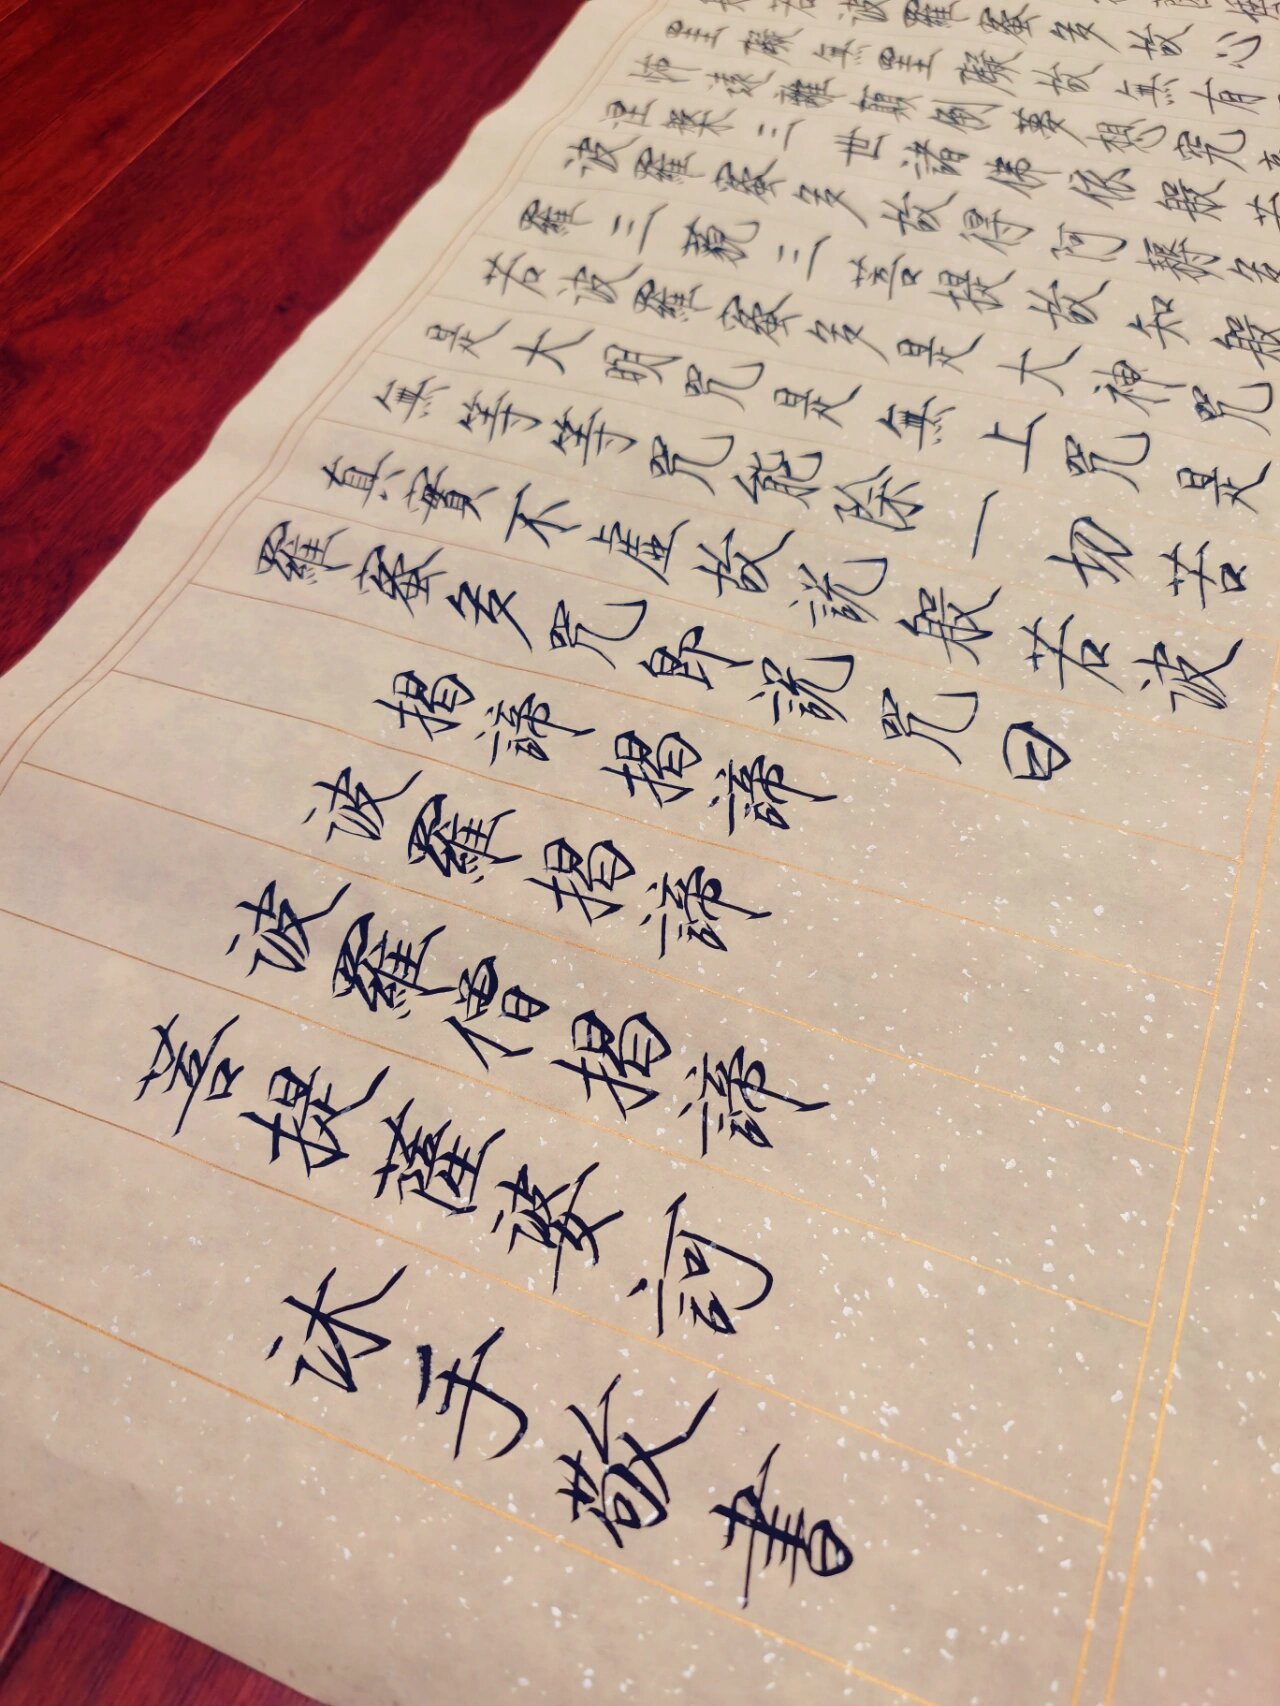 波羅蜜多故心
罣礙無罣礙故無有
怖遠離顛倒夢想究
涅槃三世諸佛依般若
波羅蜜多故得阿耨多
羅三藐三菩提故知般
若波羅蜜多是大神咒
是大明咒是無上咒是
無等等咒能除一切苦
真實不虛故說般若波
羅蜜多咒即說咒曰
揭諦揭諦
波羅揭諦
波羅僧揭諦
菩提薩婆訶
沐手敬書